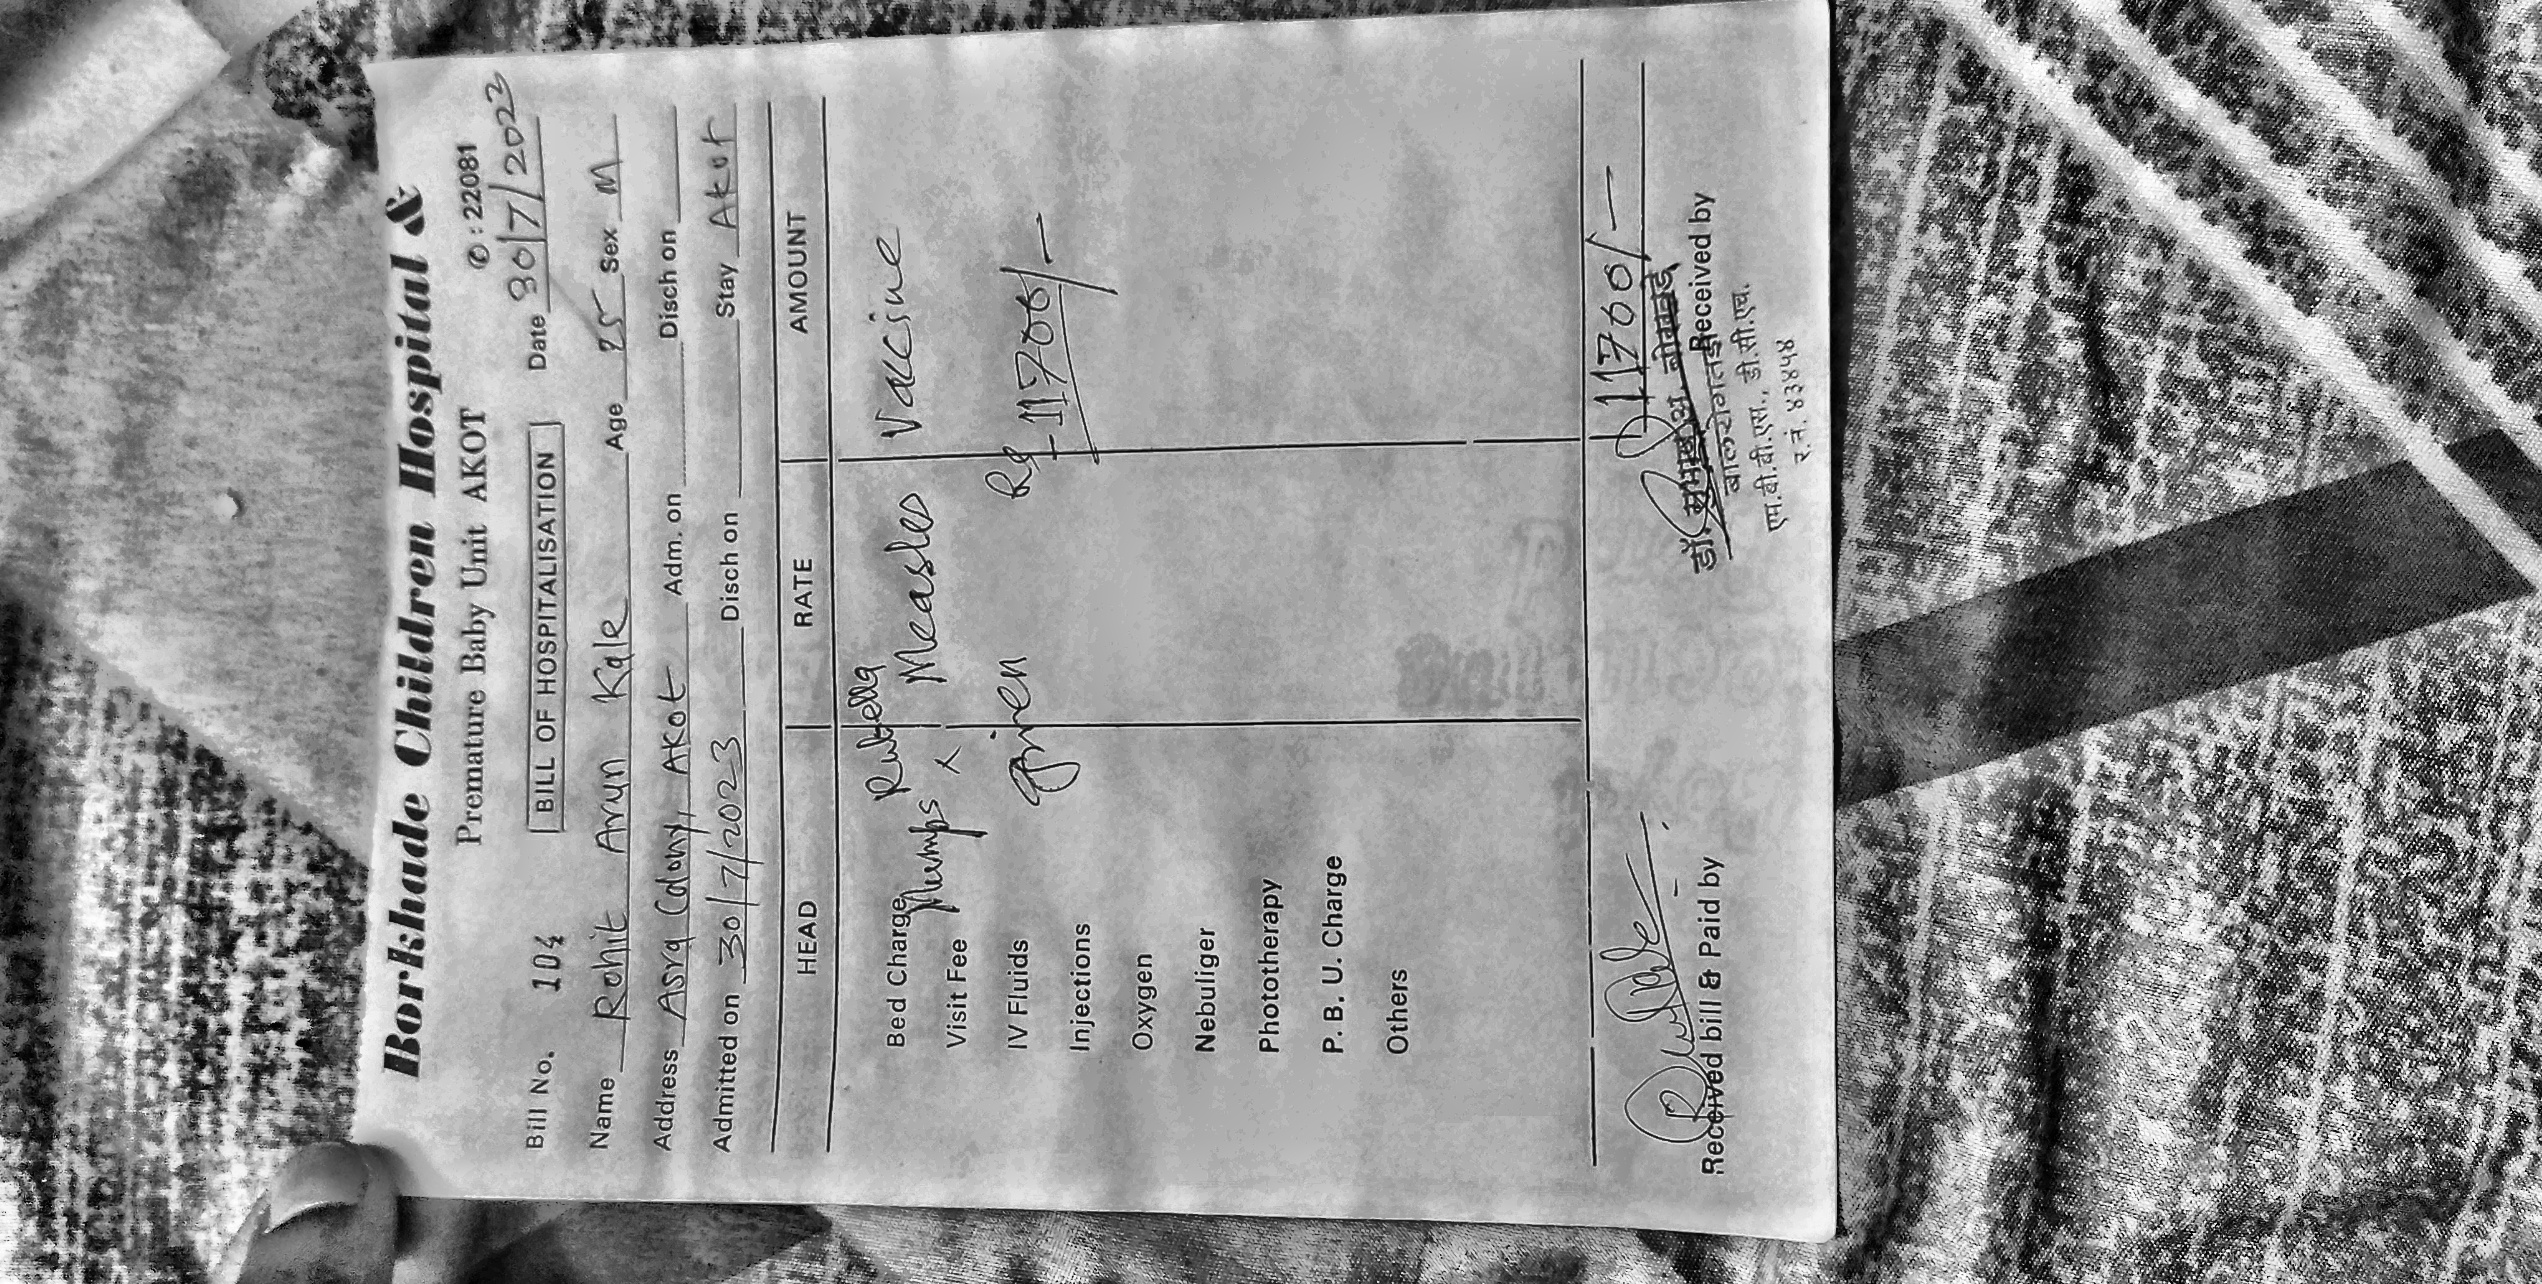 Borkhade Children Hospital &
Premature Baby Unit AKOT ✆ : 22081
Bill No. BILL OF HOSPITALISATION Date 30/7/2023
Name Rohit Arun Kale Age 25 Sex M
Address Asra Colony, AKot Adm. on Disch on
Admitted on 30/7/2023 Disch on Stay Akot
HEAD RATE AMOUNT
Bed Charge Rubella
Mumps & Measles Vaccine
Visit Fee
IV Fluids given Rs 11700/-
Injections
Oxygen
Nebuliger
Phototherapy
P. B. U. Charge
Others
11700/-
Received bill & Paid by Received by
बालरोगतज्ञ
एम.बी.बी.एस., डी.सी.एच.
र.नं. ४३४५४